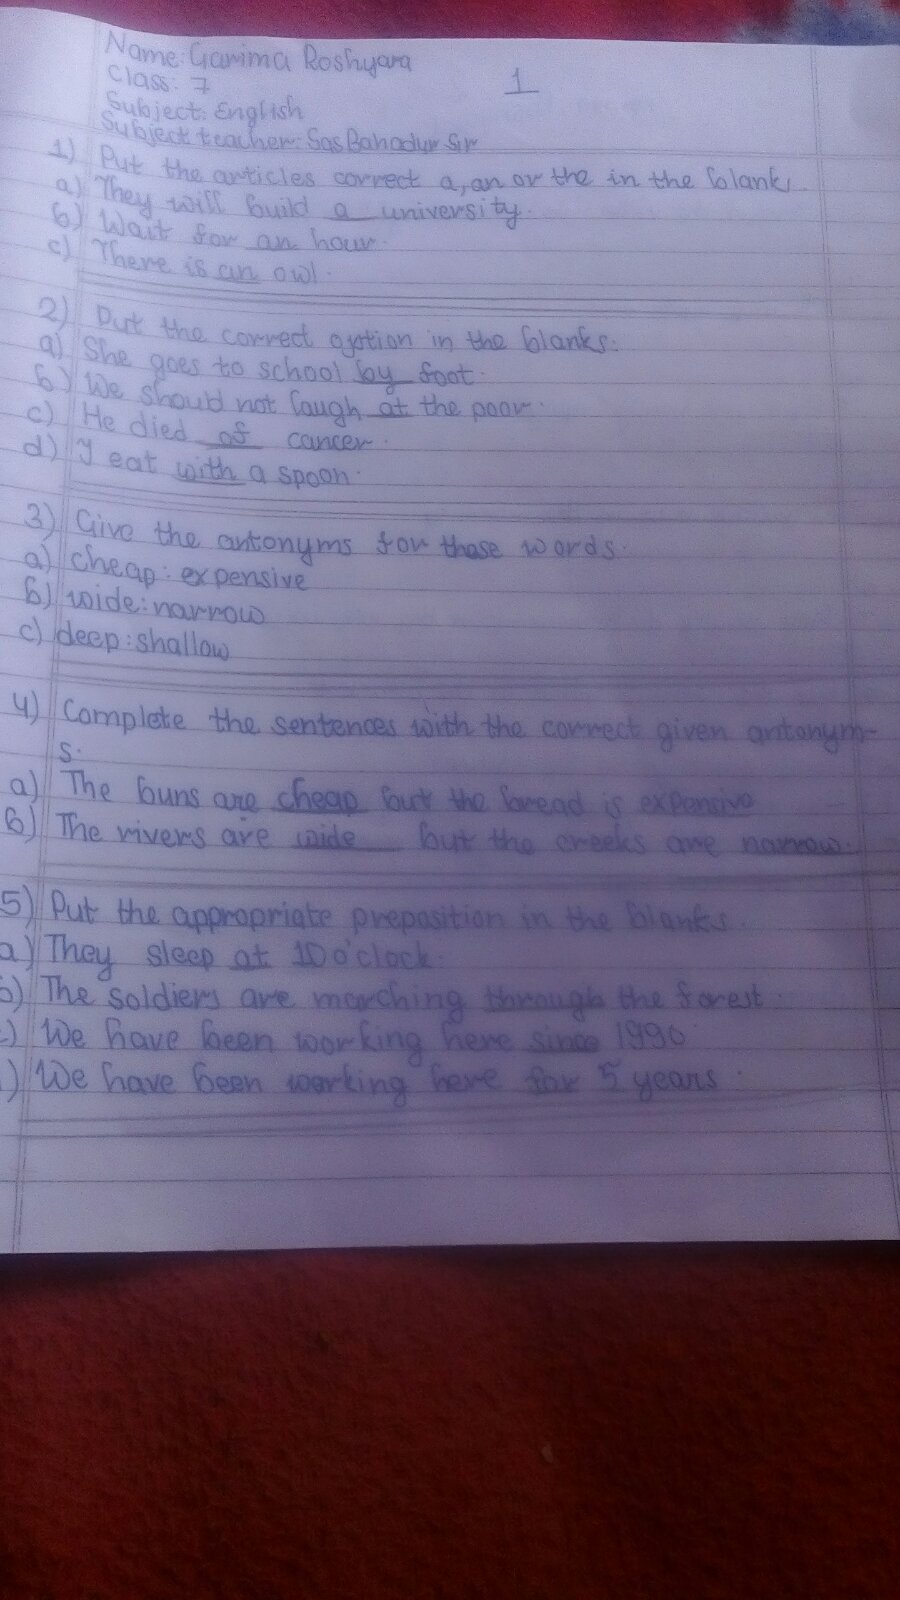 Name: Garima Roshyara
1
Class: 7
Subject: English
Subject teacher: Sas Bahadur Sir
1) Put the articles correct a, an or the in the blanks.
a) They will build a university.
b) Wait for an hour.
c) There is an owl.
2) Put the correct option in the blanks.
a) She goes to school by foot.
b) We should not laugh at the poor.
c) He died of cancer.
d) I eat with a spoon.
3) Give the antonyms for these words.
a) cheap: expensive
b) wide: narrow
c) deep: shallow
4) Complete the sentences with the correct given antonym-
s.
a) The buns are cheap but the bread is expensive
b) The rivers are wide but the creeks are narrow.
5) Put the appropriate preposition in the blanks.
a) They sleep at 10 o'clock.
b) The soldiers are marching through the forest.
) We have been working here since 1990
) We have been working here for 5 years.